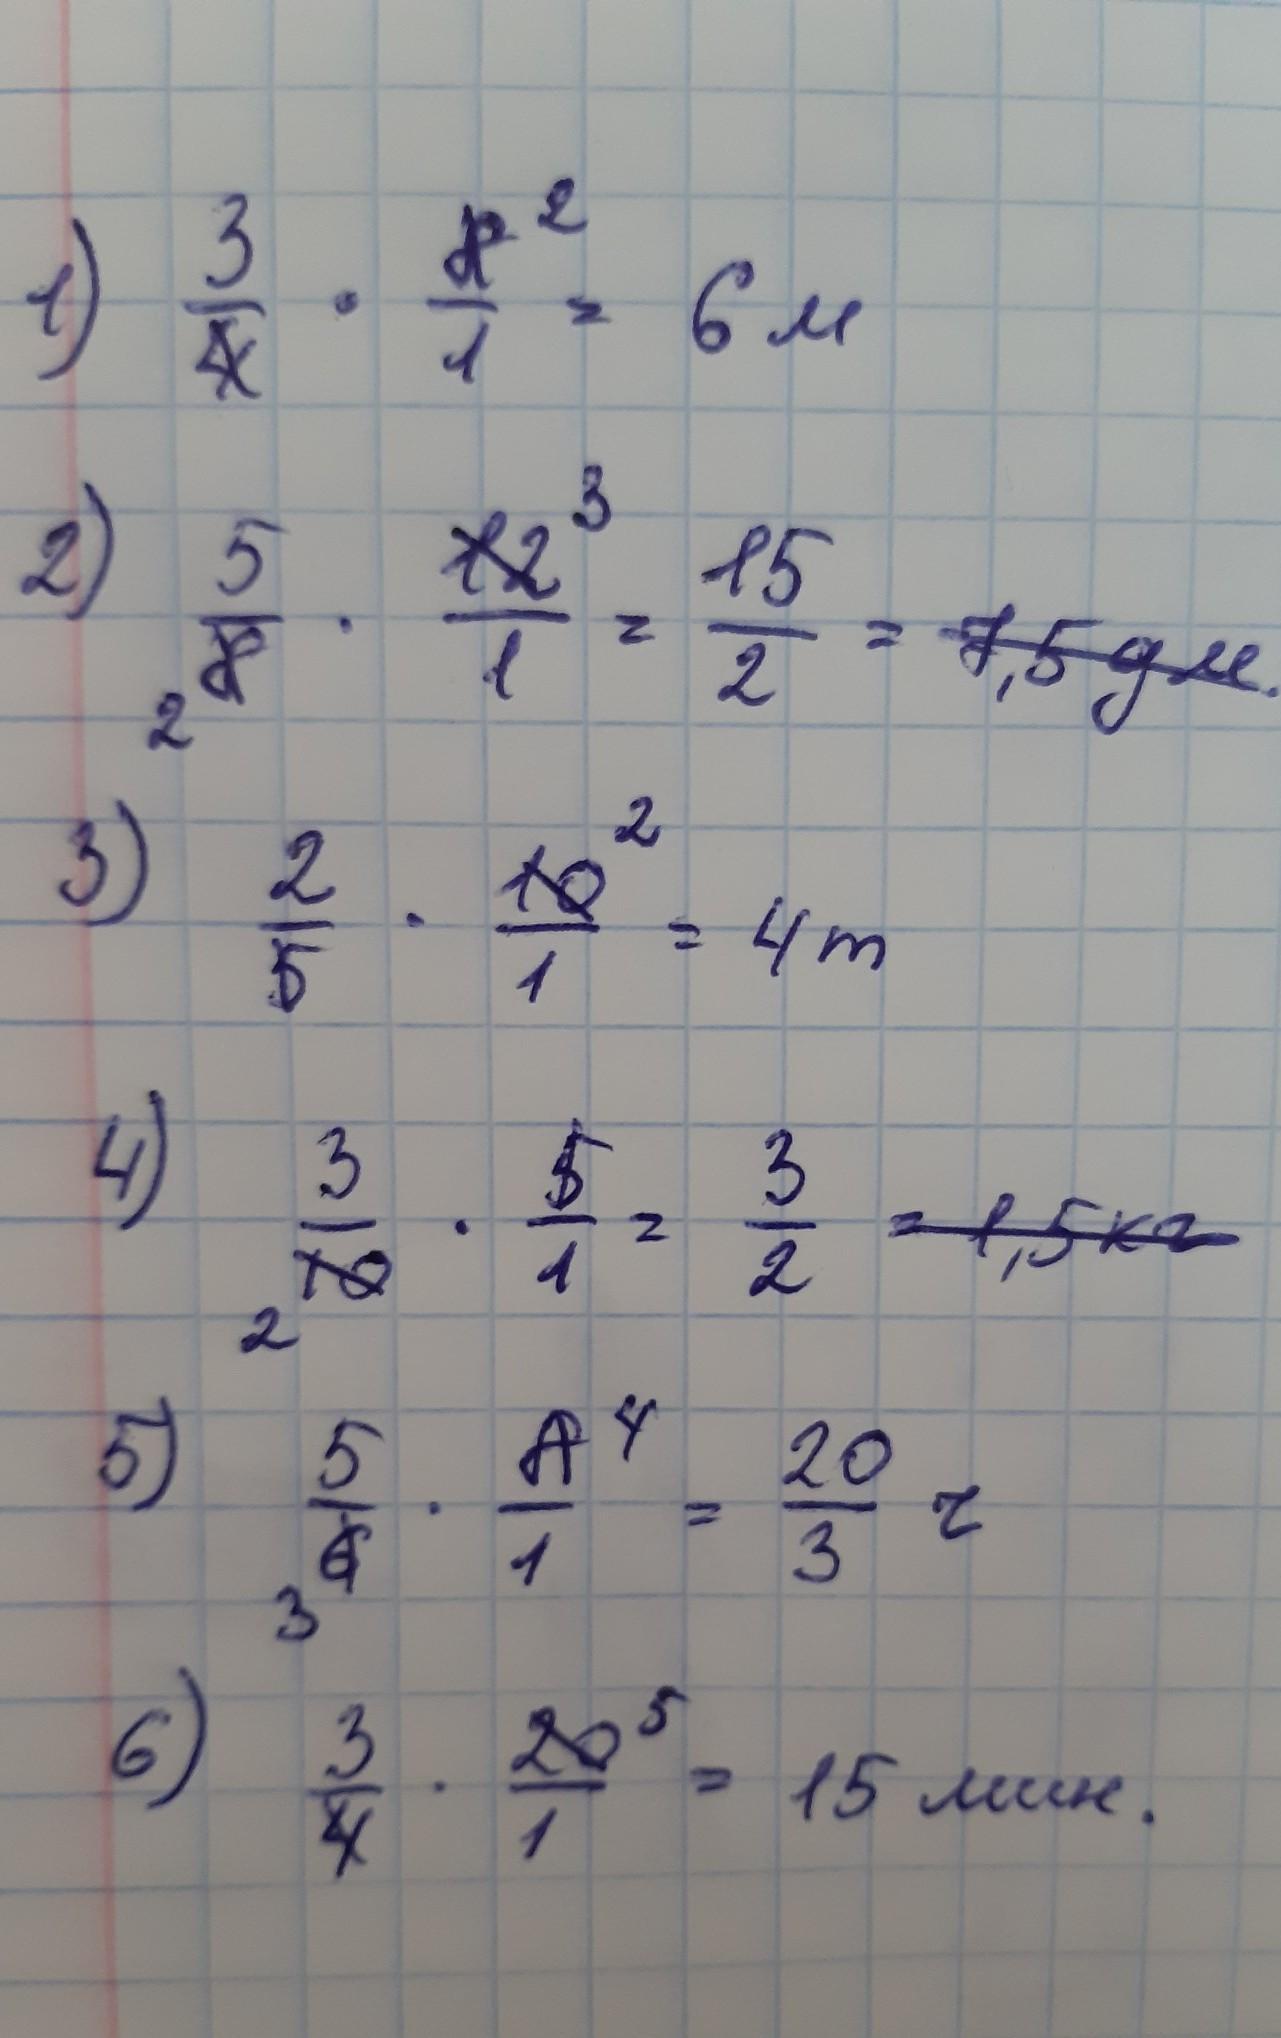 1) 3/4 · 8/1 ² = 6 м
2) 5/8 ₂ · 12/1 ³ = 15/2 = 7,5 дм.
3) 2/5 · 10/1 ² = 4 т
4) 3/10 ₂ · 5/1 = 3/2 = 1,5 кг
5) 5/6 ₃ · 8/1 ⁴ = 20/3 г
6) 3/4 · 20/1 ⁵ = 15 мин.